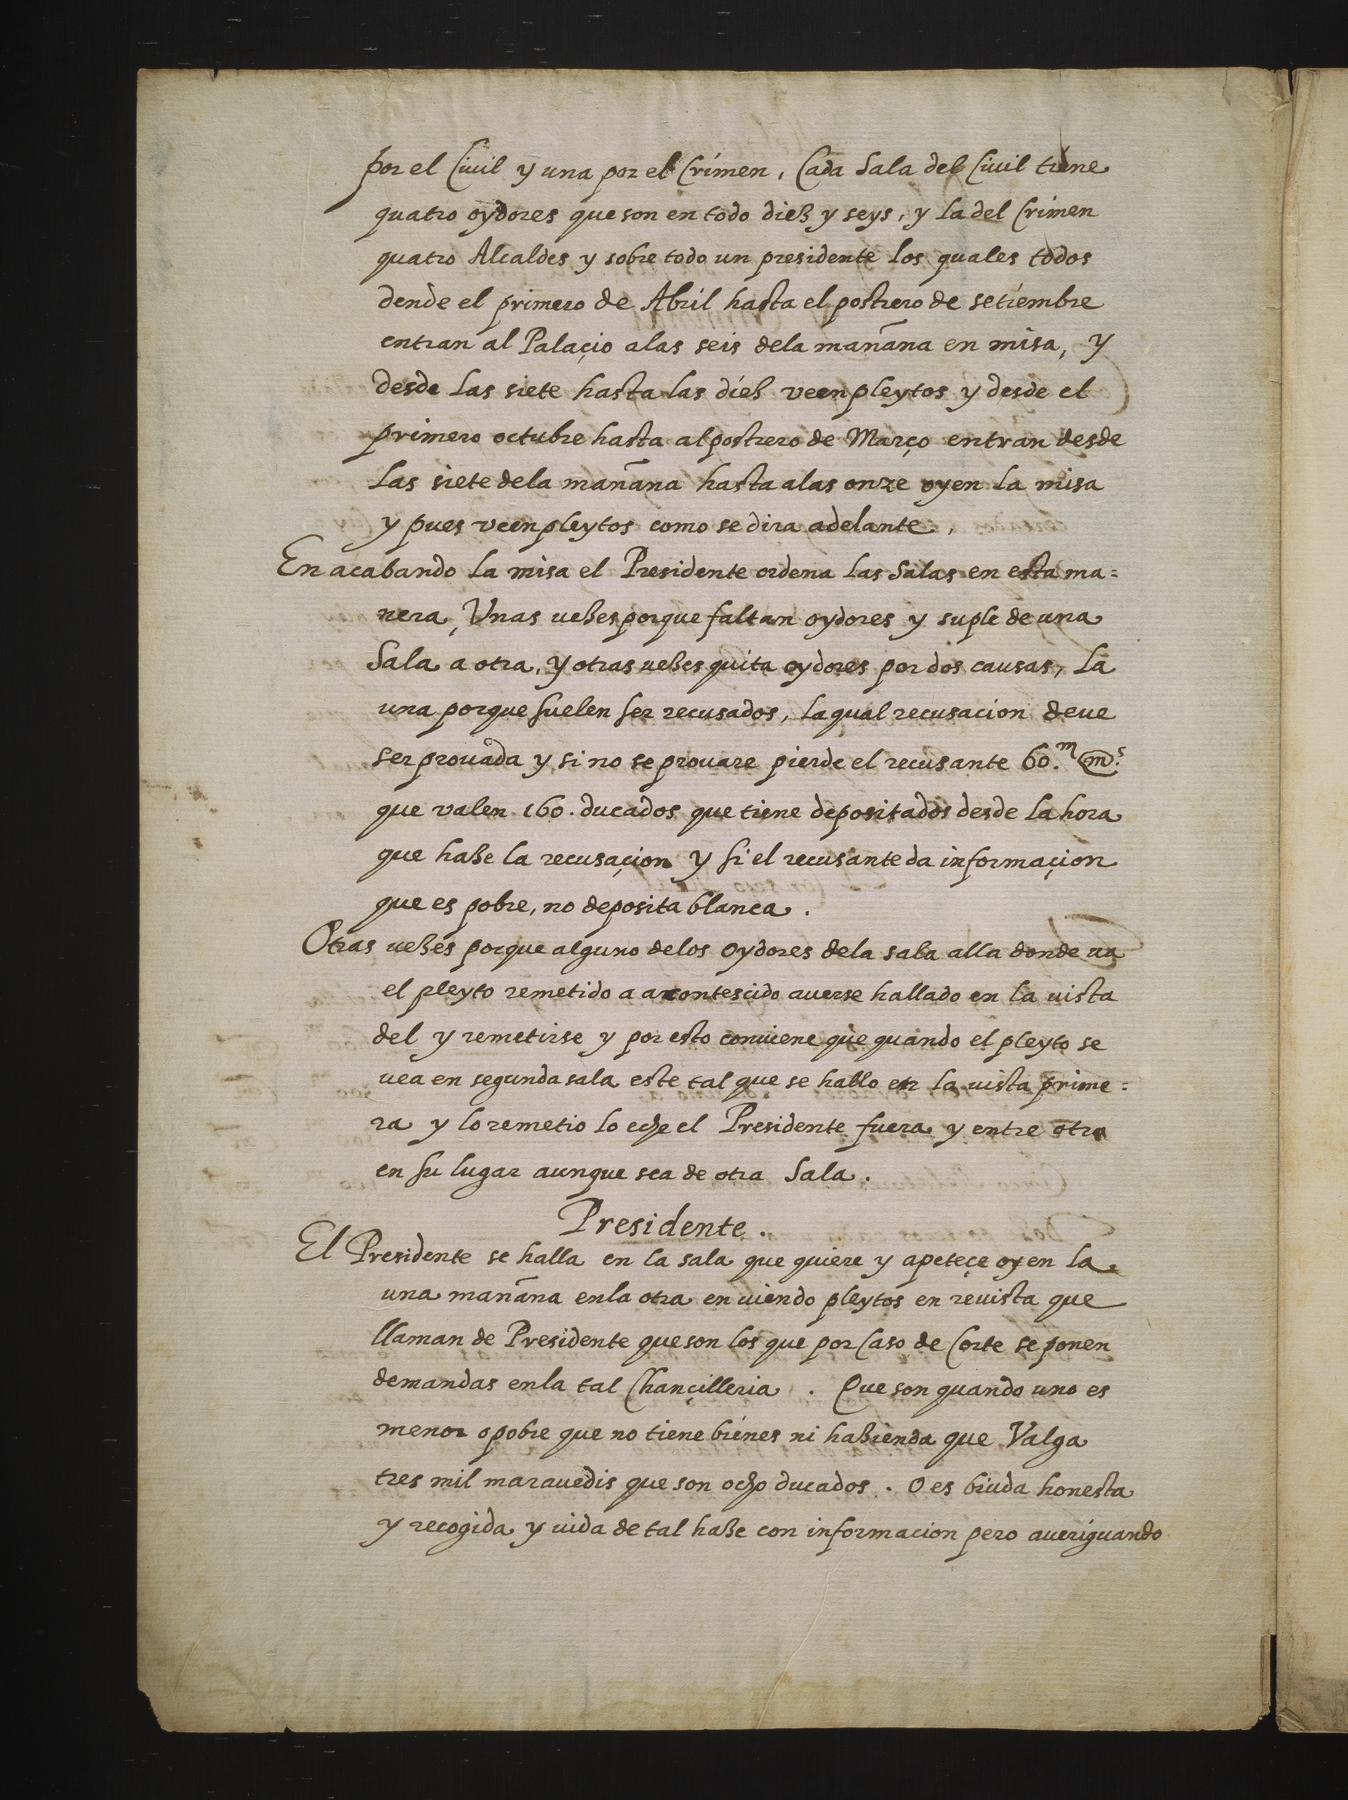 por el Ciuil y una por el Crimen, Cada Sala del Ciuil tiene
quatro oydores que son en todo diez y seys, y la del Crimen
quatro Alcaldes y sobre todo un presidente los quales todos
dende el primero de Abril hasta el postrero de setiembre
entran al Palaçio a las seis de la mañana en misa, y
desde las siete hasta las diez veen pleytos y desde el
primero octubre hasta al postrero de Março entran desde
las siete de la mañana hasta a las onze oyen la misa
y pues veen pleytos como se dira adelante.
En acabando la misa el Presidente ordena las Salas en esta ma=
nera, Unas uezes porque faltan oydores y suple de una
Sala a otra, y otras uezes quita oydores por dos causas, la
una porque suelen ser recusados, la qual recusacion deue
ser prouada y si no se prouare pierde el recusante 60.m ms.
que valen 160. ducados que tiene depositados desde la hora
que haze la recusaçion y si el recusante da informaçion
que es pobre, no deposita blanca.
Otras uezes porque alguno de los oydores de la sala alla donde ua
el pleyto remetido a acontescido auerse hallado en la uista
del y remetirse y por esto conuiene que quando el pleyto se
uea en segunda sala este tal que se hallo en la uista prime=
ra y lo remetio lo eche el Presidente fuera y entre otro
en su lugar aunque sea de otra Sala.
Presidente.
El Presidente se halla en la sala que quiere y apeteçe oyen la
una mañana en la otra en uiendo pleytos en reuista que
llaman de Presidente que son los que por Caso de Corte se ponen
demandas en la tal Chançilleria. Que son quando uno es
menor o pobre que no tiene bienes ni hazienda que Valga
tres mil marauedis que son ocho ducados. O es biuda honesta
y recogida y uida de tal haze con informacion pero aueriguando